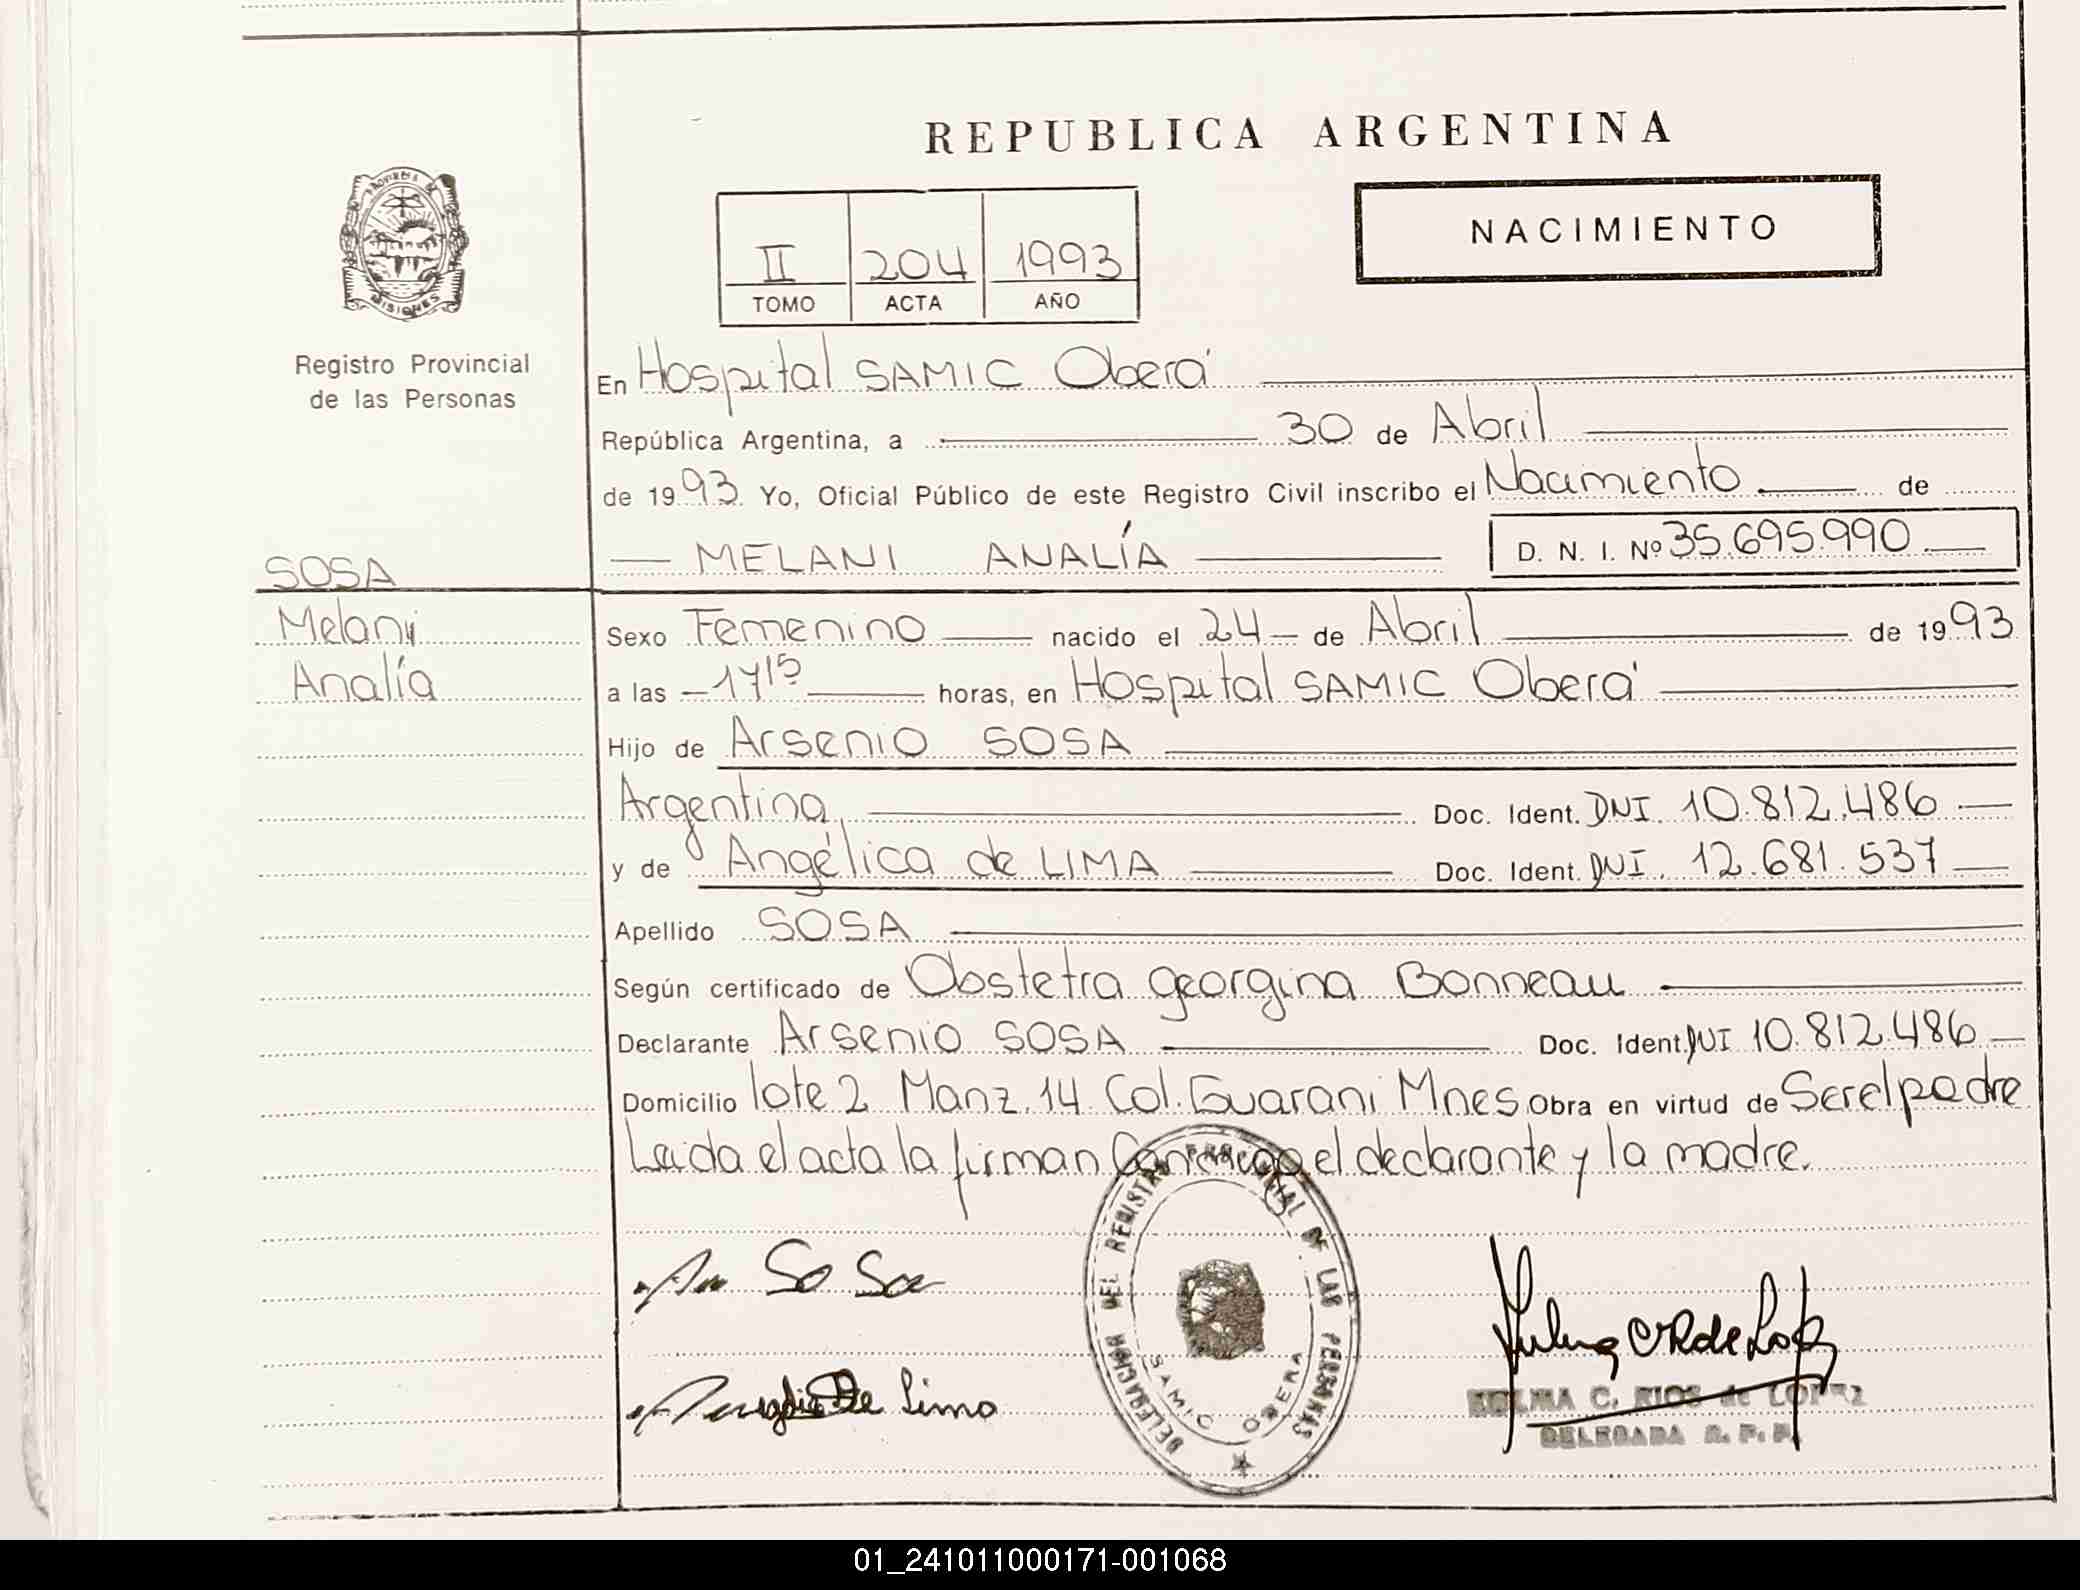 REPUBLICA ARGENTINA
NACIMIENTO
II 204 1993
TOMO ACTA AÑO
PROVINCIA DE
MISIONES
Registro Provincial
de las Personas
En Hospital SAMIC Oberá
República Argentina, a 30 de Abril
de 1993. Yo, Oficial Público de este Registro Civil inscribo el Nacimiento de
MELANI ANALÍA D. N. I. Nº 35.695.990
SOSA
Melani
Analía
Sexo Femenino nacido el 24 de Abril de 1993
a las 1715 horas, en Hospital SAMIC Oberá
Hijo de Arsenio SOSA
Argentina Doc. Ident. DNI. 10.812.486
y de Angélica de LIMA Doc. Ident. DNI. 12.681.537
Apellido SOSA
Según certificado de Obstetra georgina Bonneau
Declarante Arsenio SOSA Doc. Ident. DNI 10.812.486
Domicilio lote 2 Manz. 14 Col. Guarani Mnes Obra en virtud de Ser el padre
Leida el acta la firman Conmigo el declarante y la madre.
DELEGACION DEL REGISTRO PROVINCIAL DE LAS PERSONAS
SAMIC OBERA
Sosa
De Lima
C. RIOS de LOPEZ
DELEGADA R. P. P.
01_241011000171-001068